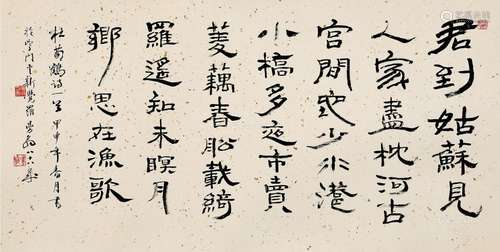 君到姑蘇見
人家盡枕河古
宮間地少水港
小橋多夜市賣
菱藕春船載綺
羅遙知未瞑月
鄉思在漁歌
杜荀鶴詩一首甲申年春月書
於門愛新覺羅